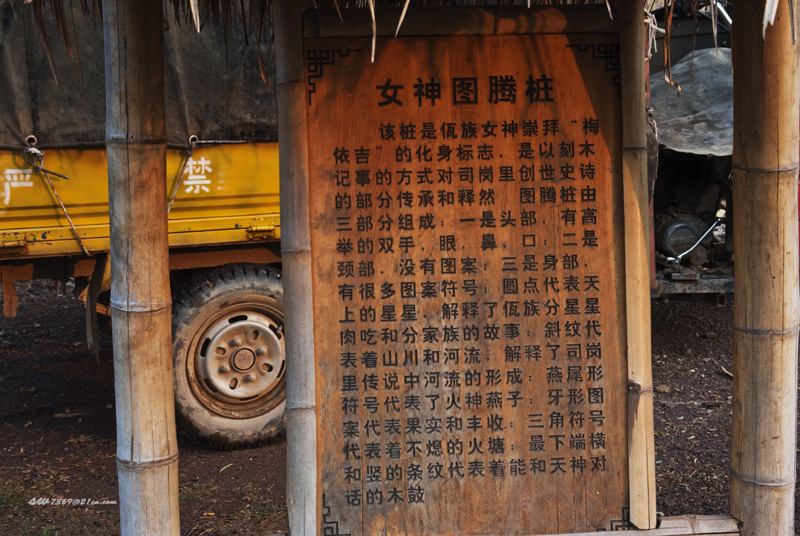 女神图腾桩
该桩是佤族女神崇拜“梅
依吉”的化身标志，是以刻木
记事的方式对司岗里创世史诗
的部分传承和释然，图腾桩由
三部分组成：一是头部，有高
举的双手，眼、鼻、口；二是
颈部，没有图案；三是身部，
有很多图案符号：圆点代表天
上的星星，解释了佤族分星星
肉吃和分家族的故事；斜纹代
表着山川和河流，解释了司岗
里传说中河流的形成；燕尾形
符号代表了火神燕子；牙形图
案代表果实和丰收；三角形号
代表着不熄的火塘；最下端横
和竖的条纹代表着能和天神对
话的木鼓
严
禁
sw7369@21cn.com